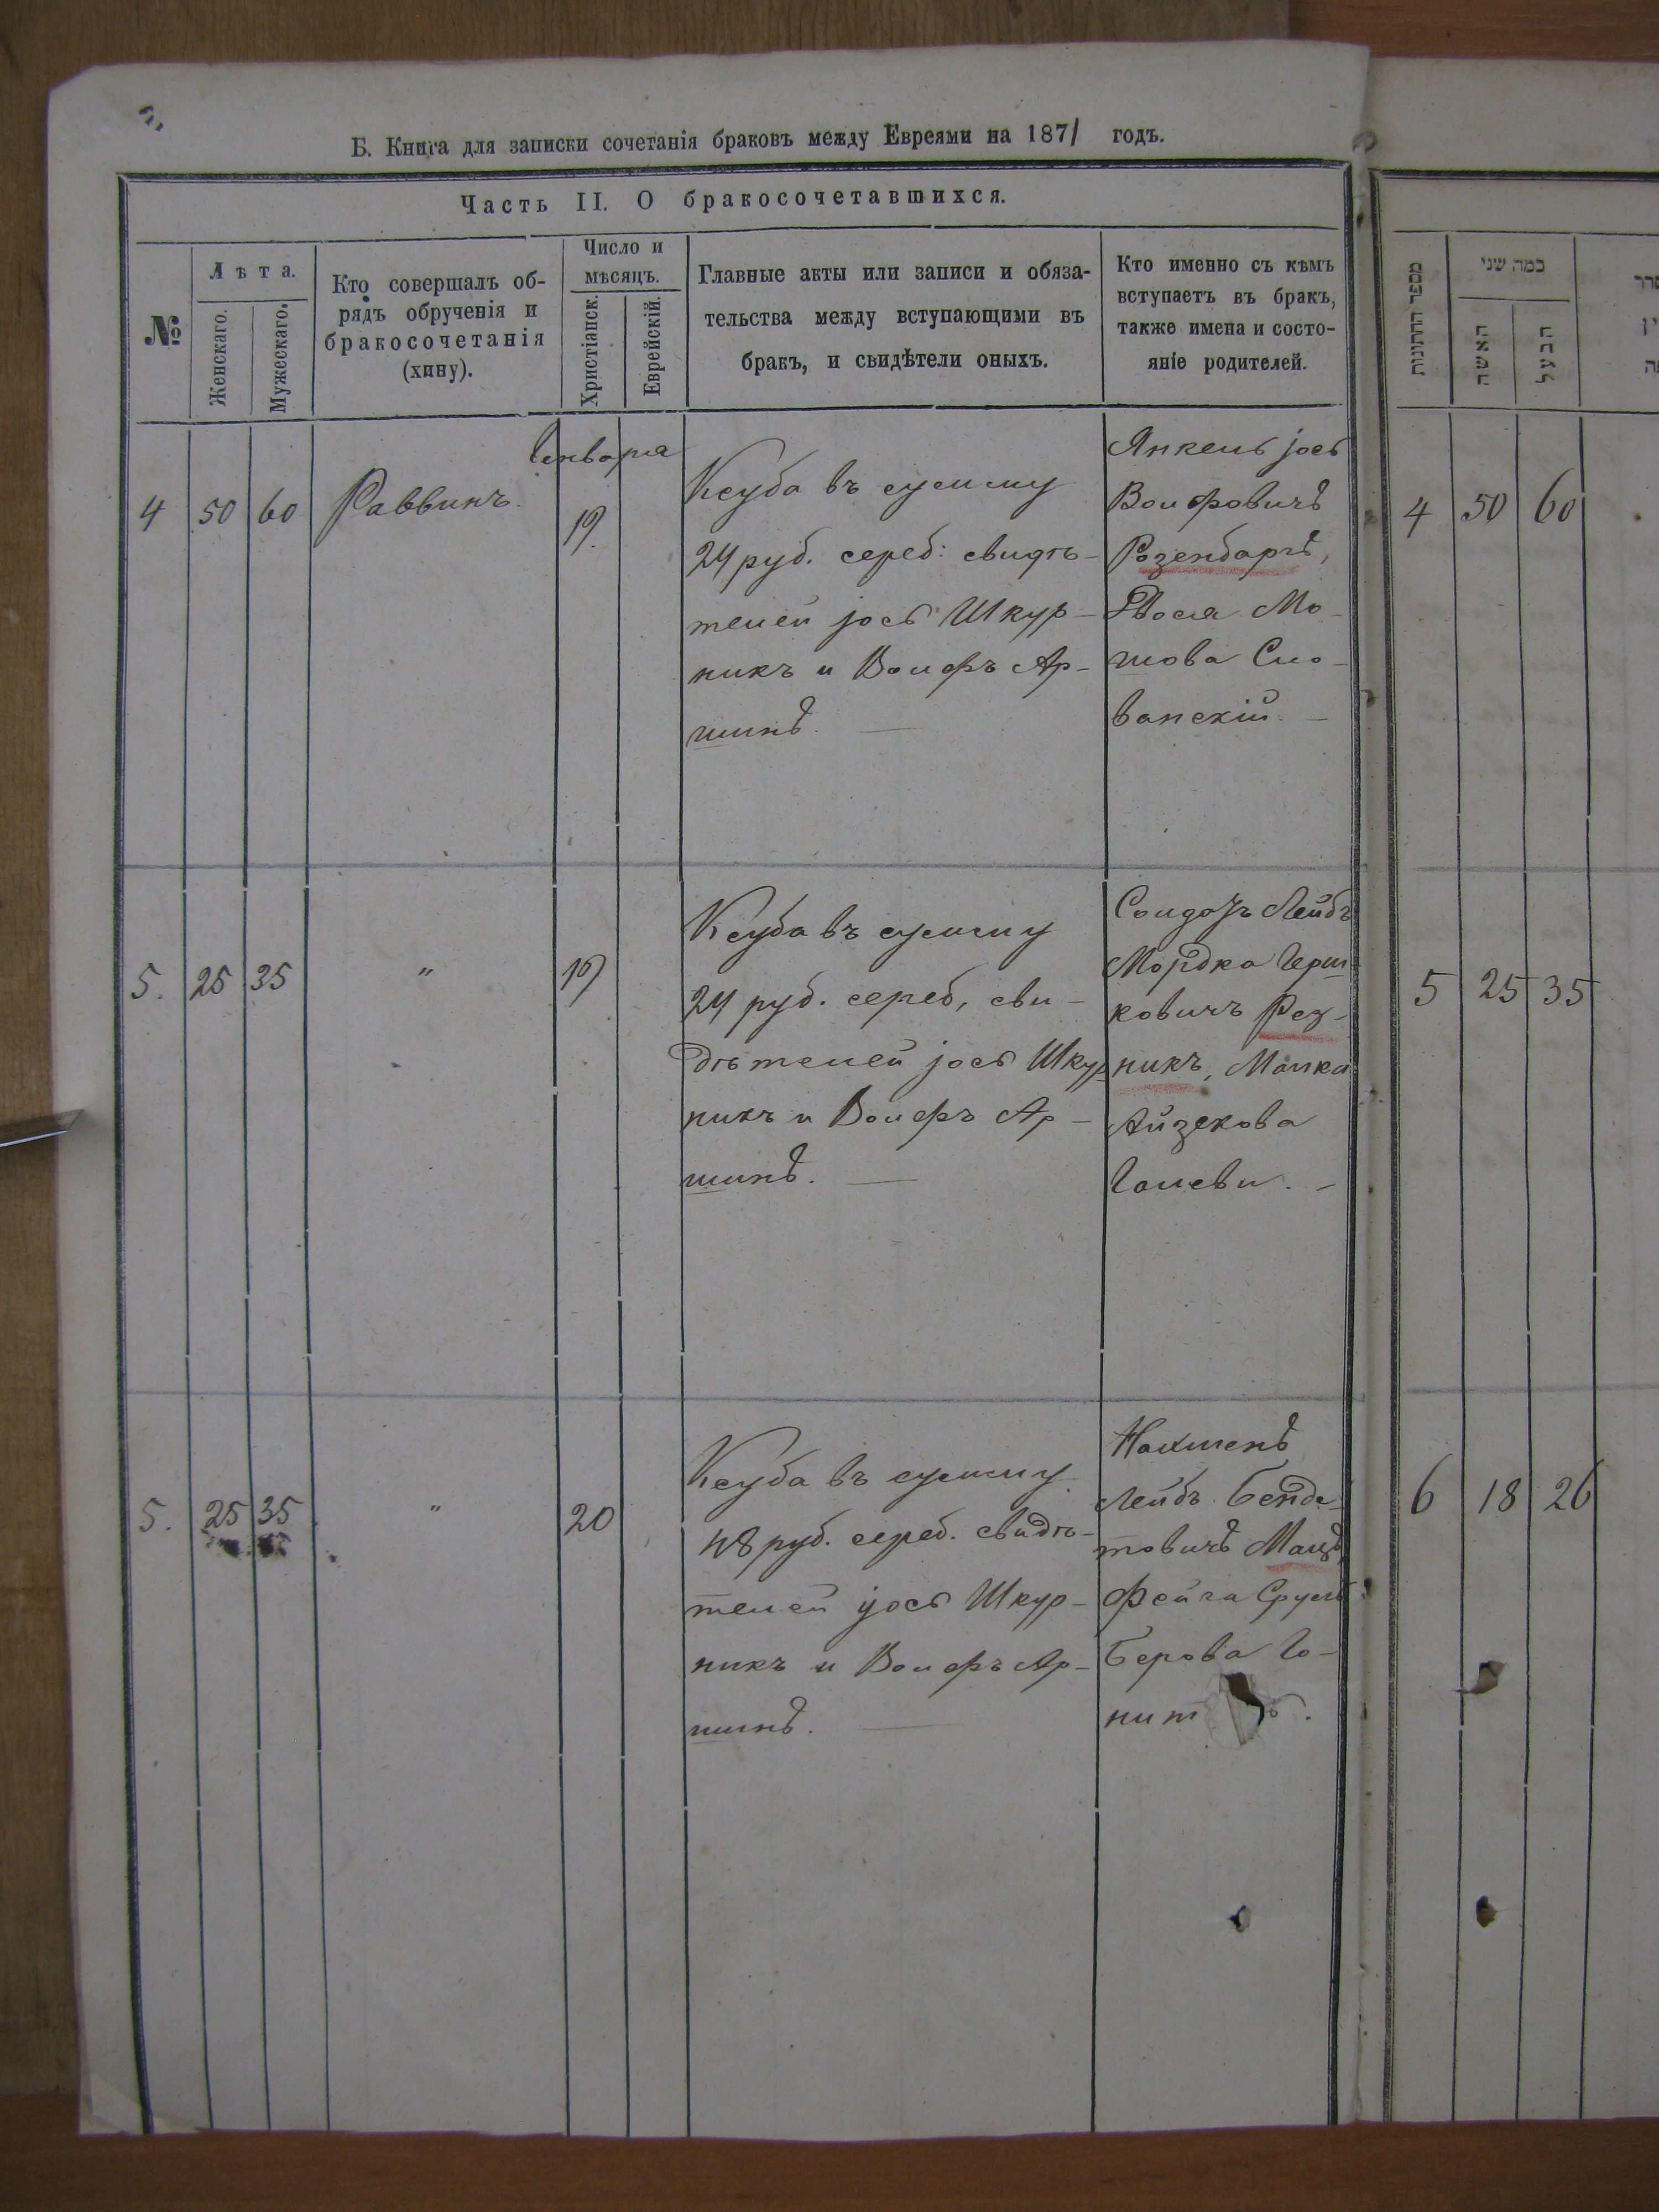 Б. Книга для записки сочетанія браковъ между Евреями на 1871 годъ.
Часть II. О бракосочетавшихся.
№
Лѣта.
Женскаго.
Мужескаго.
Кто совершалъ об-
рядъ обрученія и
бракосочетанія
(хину).
Число и
мѣсяцъ.
Христіанск.
Еврейскій.
Главные акты или записи и обяза-
тельства между вступающими въ
бракъ, и свидѣтели оныхъ.
Кто именно съ кѣмъ
вступаетъ въ бракъ,
также имена и состо-
яніе родителей.
4
50
60
Раввинъ.
Января
19.
Ксуба въ сумму
24 руб. сереб: свидѣ-
телей Jось Шкур-
никъ и Волфъ Ар-
шинъ. —
Янкель Jось
Волфовичъ
Розенбаргъ,
Двося Мо-
шова Сло-
ванскій. —
5.
25
35
"
19
Ксуба въ сумму
24 руб. сереб, сви-
дѣтелей Jось Шкур
никъ и Волфъ Ар-
шинъ. —
Мордка Герш-
ковичъ Рез-
никъ, Малка
Айзекова
5.
25
35
"
20
Ксуба въ сумму
48 руб. сереб. свидѣ-
телей Jось Шкур-
никъ и Волфъ Ар-
шинъ. —
Нахменъ
Лейбъ Бенде-
товичъ Мацъ,
Фейга Сруль
Берова Го-
מספר החתונות
כמה שני
האשה
הבעל
4
50
60
5
25
35
6
18
26